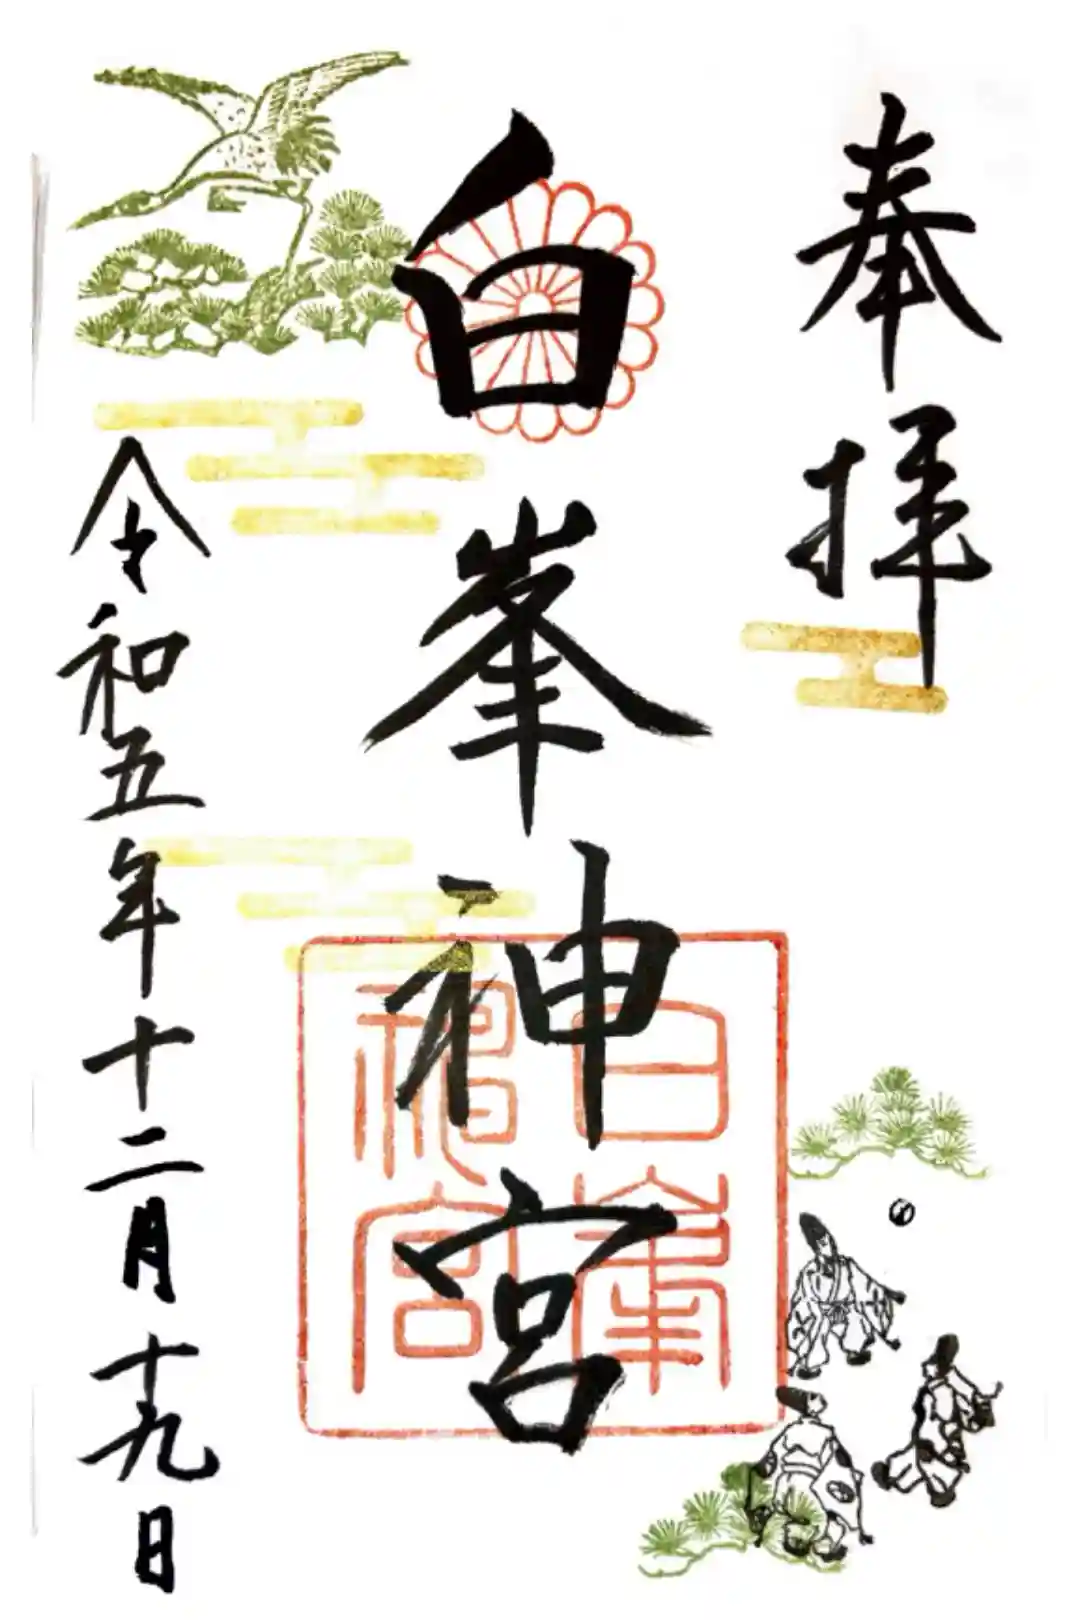 奉拝
白峯神宮
白峯
神宮
令和五年十二月十九日